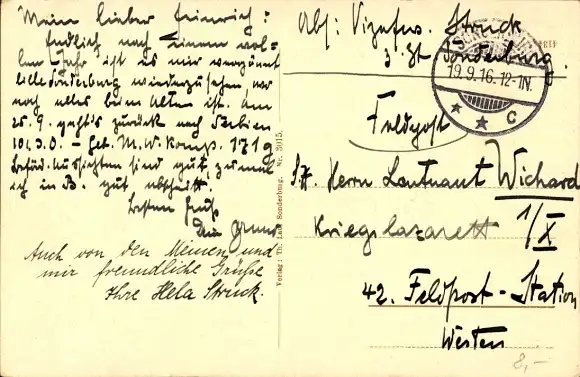 Mein lieber Heinrich!
Endlich nach einem vol-
len Jahr ist es mir vergönnt
Sonderburg wiederzusehen, wo
noch alles beim Alten ist. Am
25. 9. geht's zurück nach Serbien
10/3.0. – M.W. Komp. 179
sind gut,
ich in B. gut
Besten Gruß
Dein
Auch von den Meinen und
mir freundliche Grüße
Ihre Hela Struck.
Verlag: Th. Sonderburg. Nr. 3015.
Abs: Vizefw. Struck
3. St Sonderburg.
19.9.16.12-1N.
C
Feldpost
S/H. Herrn Leutnant Wichard
Kriegslazarett 1/X
42. Feldpost-Station
Westen
8,-